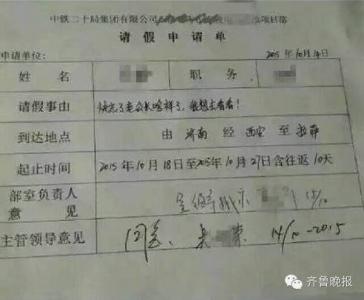 中铁二十局集团有限公司 项目部
请假申请单
申请单位： 2015年10月14日
姓名 职务
请假事由 快忘了老公长啥样了，很想去看看！
到达地点 由 济南 经 西安 至 拉萨
起止时间 2015年10月18日至2015年10月27日含往返10天
部室负责人
意见 15/10
主管领导意见 同意、 14/10-2015
齐鲁晚报